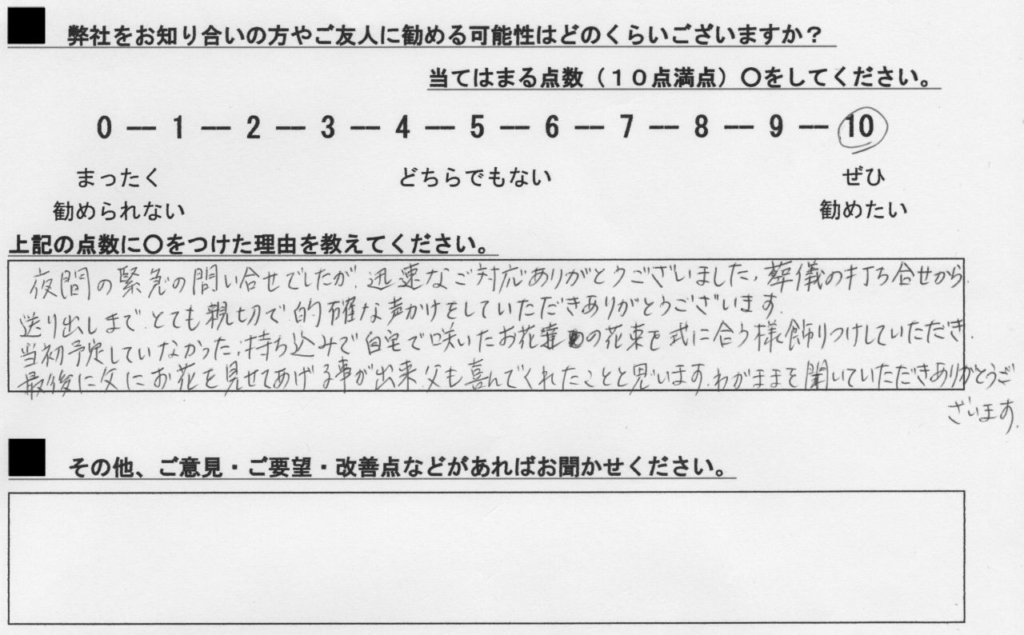 弊社をお知り合いの方やご友人に勧める可能性はどのくらいございますか？
当てはまる点数（１０点満点）〇をしてください。
0 ― 1 ― 2 ― 3 ― 4 ― 5 ― 6 ― 7 ― 8 ― 9 ― 10
まったく どちらでもない ぜひ
勧められない 勧めたい
上記の点数に〇をつけた理由を教えてください。
夜間の緊急の問い合せでしたが、迅速なご対応ありがとうございました。葬儀の打ち合せから
送り出しまで、とても親切で的確な声かけをしていただきありがとうございます。
当初予定していなかった、持ち込みで自宅で咲いたお花の花束を式に合う様飾りつけしていただき、
最後に父にお花を見せてあげる事が出来父も喜んでくれたことと思います。わがままを聞いていただきありがとうご
ざいます。
その他、ご意見・ご要望・改善点などがあればお聞かせください。